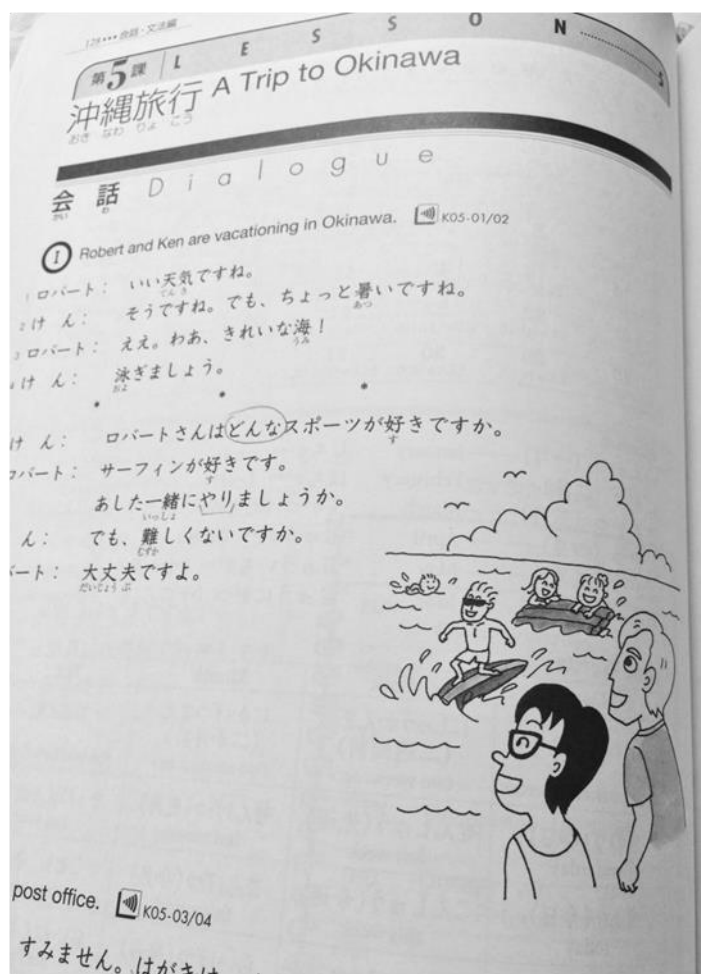 128••• 会話・文法編
第5課 L E S S O N 5
沖縄旅行 A Trip to Okinawa
おき なわ りょ こう
会話 Dialogue
かい わ
I Robert and Ken are vacationing in Okinawa. K05-01/02
1 ロバート： いい天気ですね。
てん き
2 け ん： そうですね。でも、ちょっと暑いですね。
あつ
3 ロバート： ええ。わあ、きれいな海！
うみ
4 け ん： 泳ぎましょう。
およ
* * *
け ん： ロバートさんはどんなスポーツが好きですか。
す
ロバート： サーフィンが好きです。
す
あした一緒にやりましょうか。
いっしょ
ん： でも、難しくないですか。
むずか
バート： 大丈夫ですよ。
だいじょう ぶ
post office. K05-03/04
すみません。はがきは